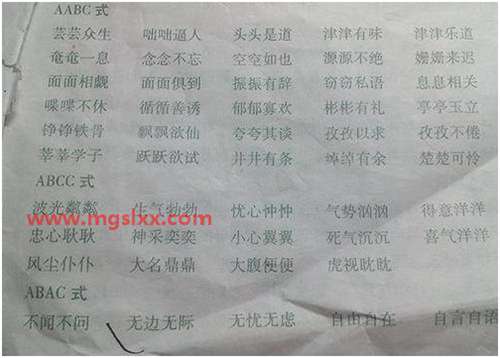 AABC 式
芸芸众生 咄咄逼人 头头是道 津津有味 津津乐道
奄奄一息 念念不忘 空空如也 源源不绝 姗姗来迟
面面相觑 面面俱到 振振有辞 窃窃私语 息息相关
喋喋不休 循循善诱 郁郁寡欢 彬彬有礼 亭亭玉立
铮铮铁骨 飘飘欲仙 夸夸其谈 孜孜以求 孜孜不倦
莘莘学子 跃跃欲试 井井有条 绰绰有余 楚楚可怜
ABCC 式
波光粼粼 生气勃勃 忧心忡忡 气势汹汹 得意洋洋
www.mgslxx.com
忠心耿耿 神采奕奕 小心翼翼 死气沉沉 喜气洋洋
风尘仆仆 大名鼎鼎 大腹便便 虎视眈眈
ABAC 式
不闻不问 无边无际 无忧无虑 自由自在 自言自语